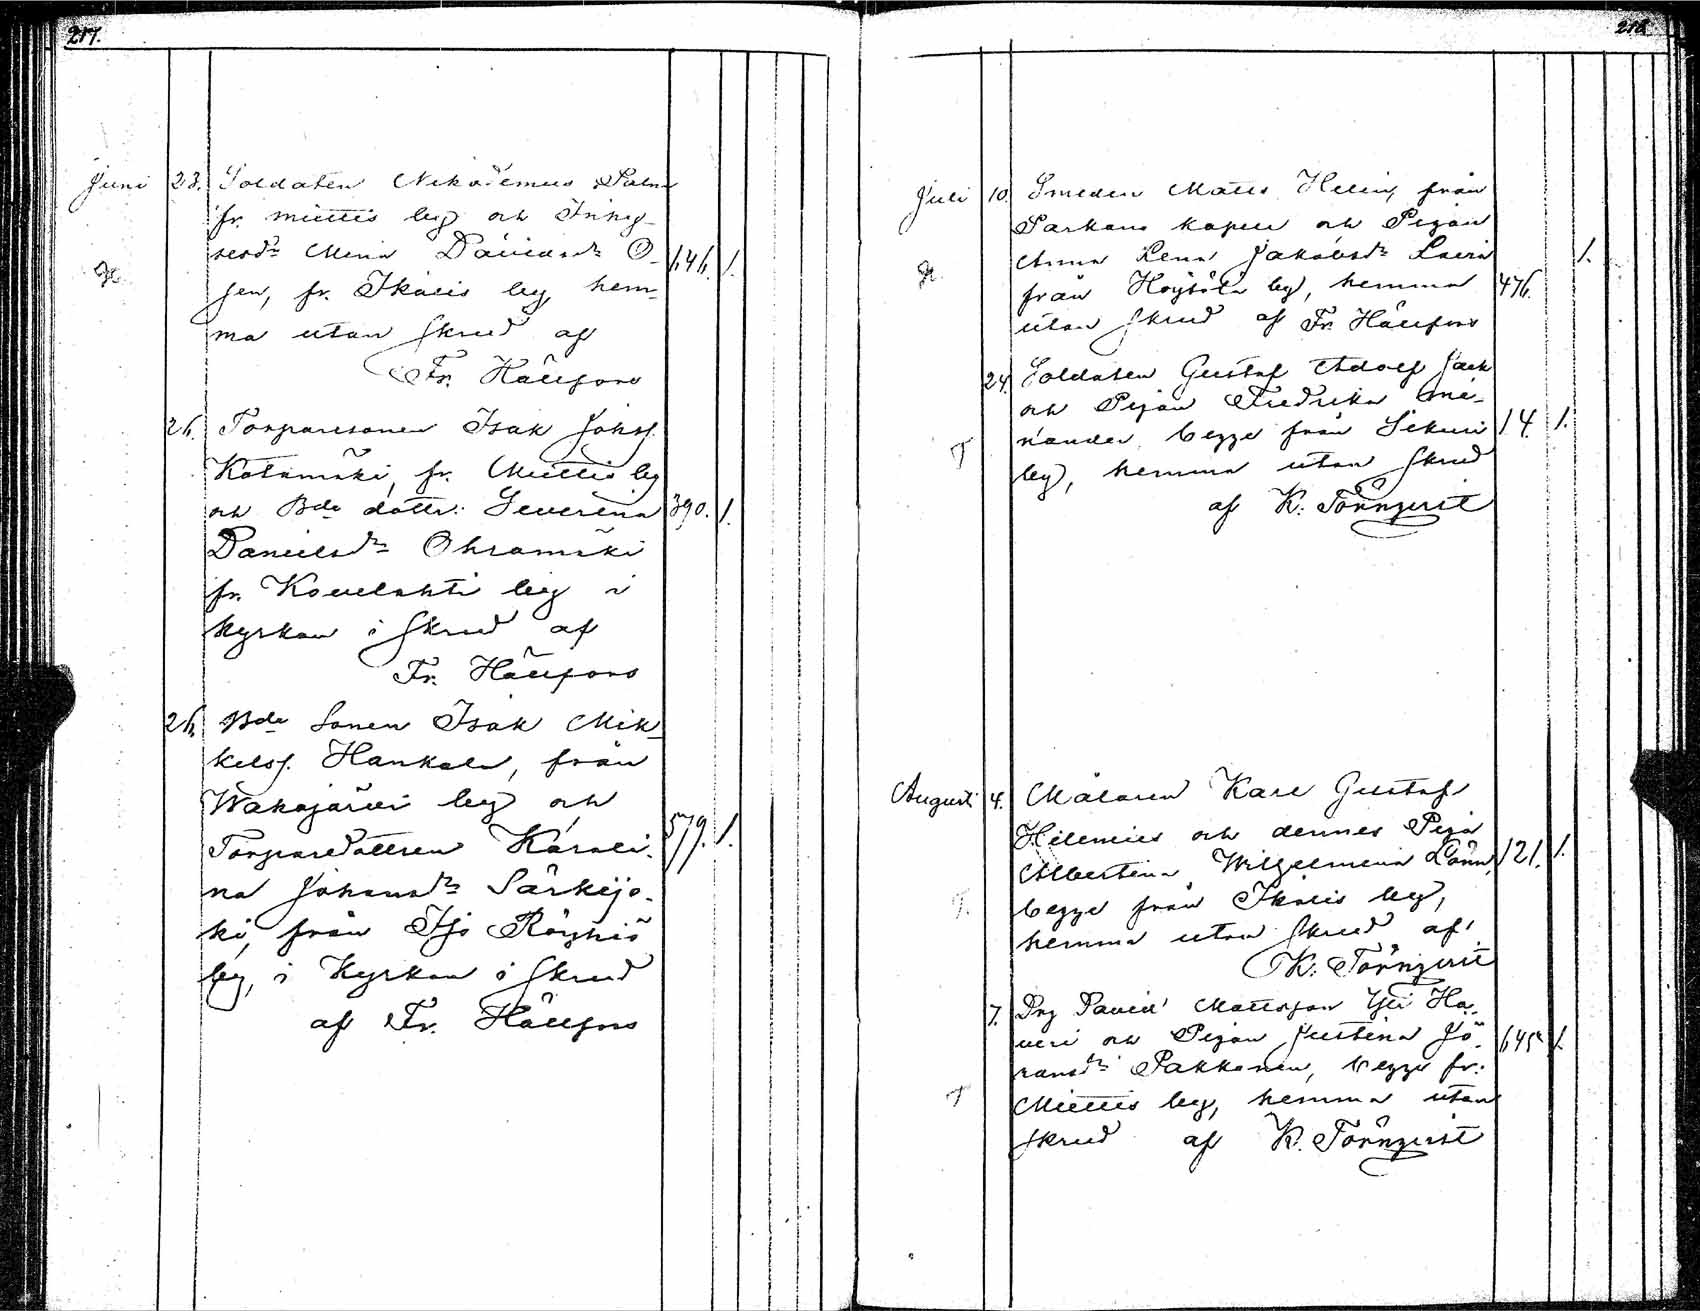 217.
Juni 23. Soldaten Nikodemus Palm
fr. Miettis by och Inhys-
resdr Mina Davidsdr O- 646. 1.
H
jen, fr. Ikalis by, hem-
ma utan skrud af
Fr. Hällfors
26. Torparesonen Isak Johss.
Kotamäki, fr. Miettis by
och Bde dottr. Severina 390. 1.
Danielsdr Ohramäki
fr. Kovelahti by i
kyrkan i skrud af
Fr. Hällfors
26. Bde Sonen Isak Mik-
kelss. Hankala, från
Wahojärvi by och
Torparedottren Karoli- 579. 1.
na Johansdr Särkijo-
ki, från Iso Röyhiö
by, i Kyrkan i skrud
af Fr. Hällfors
218.
Juli 10. Smeden Matts Helin, från
Parkano kapell och Pigan
Anna Lena Jakobsdr Lauri 1.
H
från Höytölä by, hemma 476.
utan skrud af Fr. Hällfors
24. Soldaten Gustaf Adolf Jack
och Pigan Fredrika Ene-
T
nander, begge från Sikuri 14. 1.
by, hemma utan skrud
af K: Törnqvist
Augusti 4. Målaren Karl Gustaf
Hilenius och dennes Piga
Albertina Wilhelmina Lönn, 121. 1.
T.
begge från Ikalis by,
hemma utan skrud af
K: Törnqvist
7. Drg David Mattsson Yli Ha-
veri och Pigan Justina Jö- 645. 1.
ransdr Pakkanen, begge fr:
T
Miettis by, hemma utan
skrud af K. Törnqvist